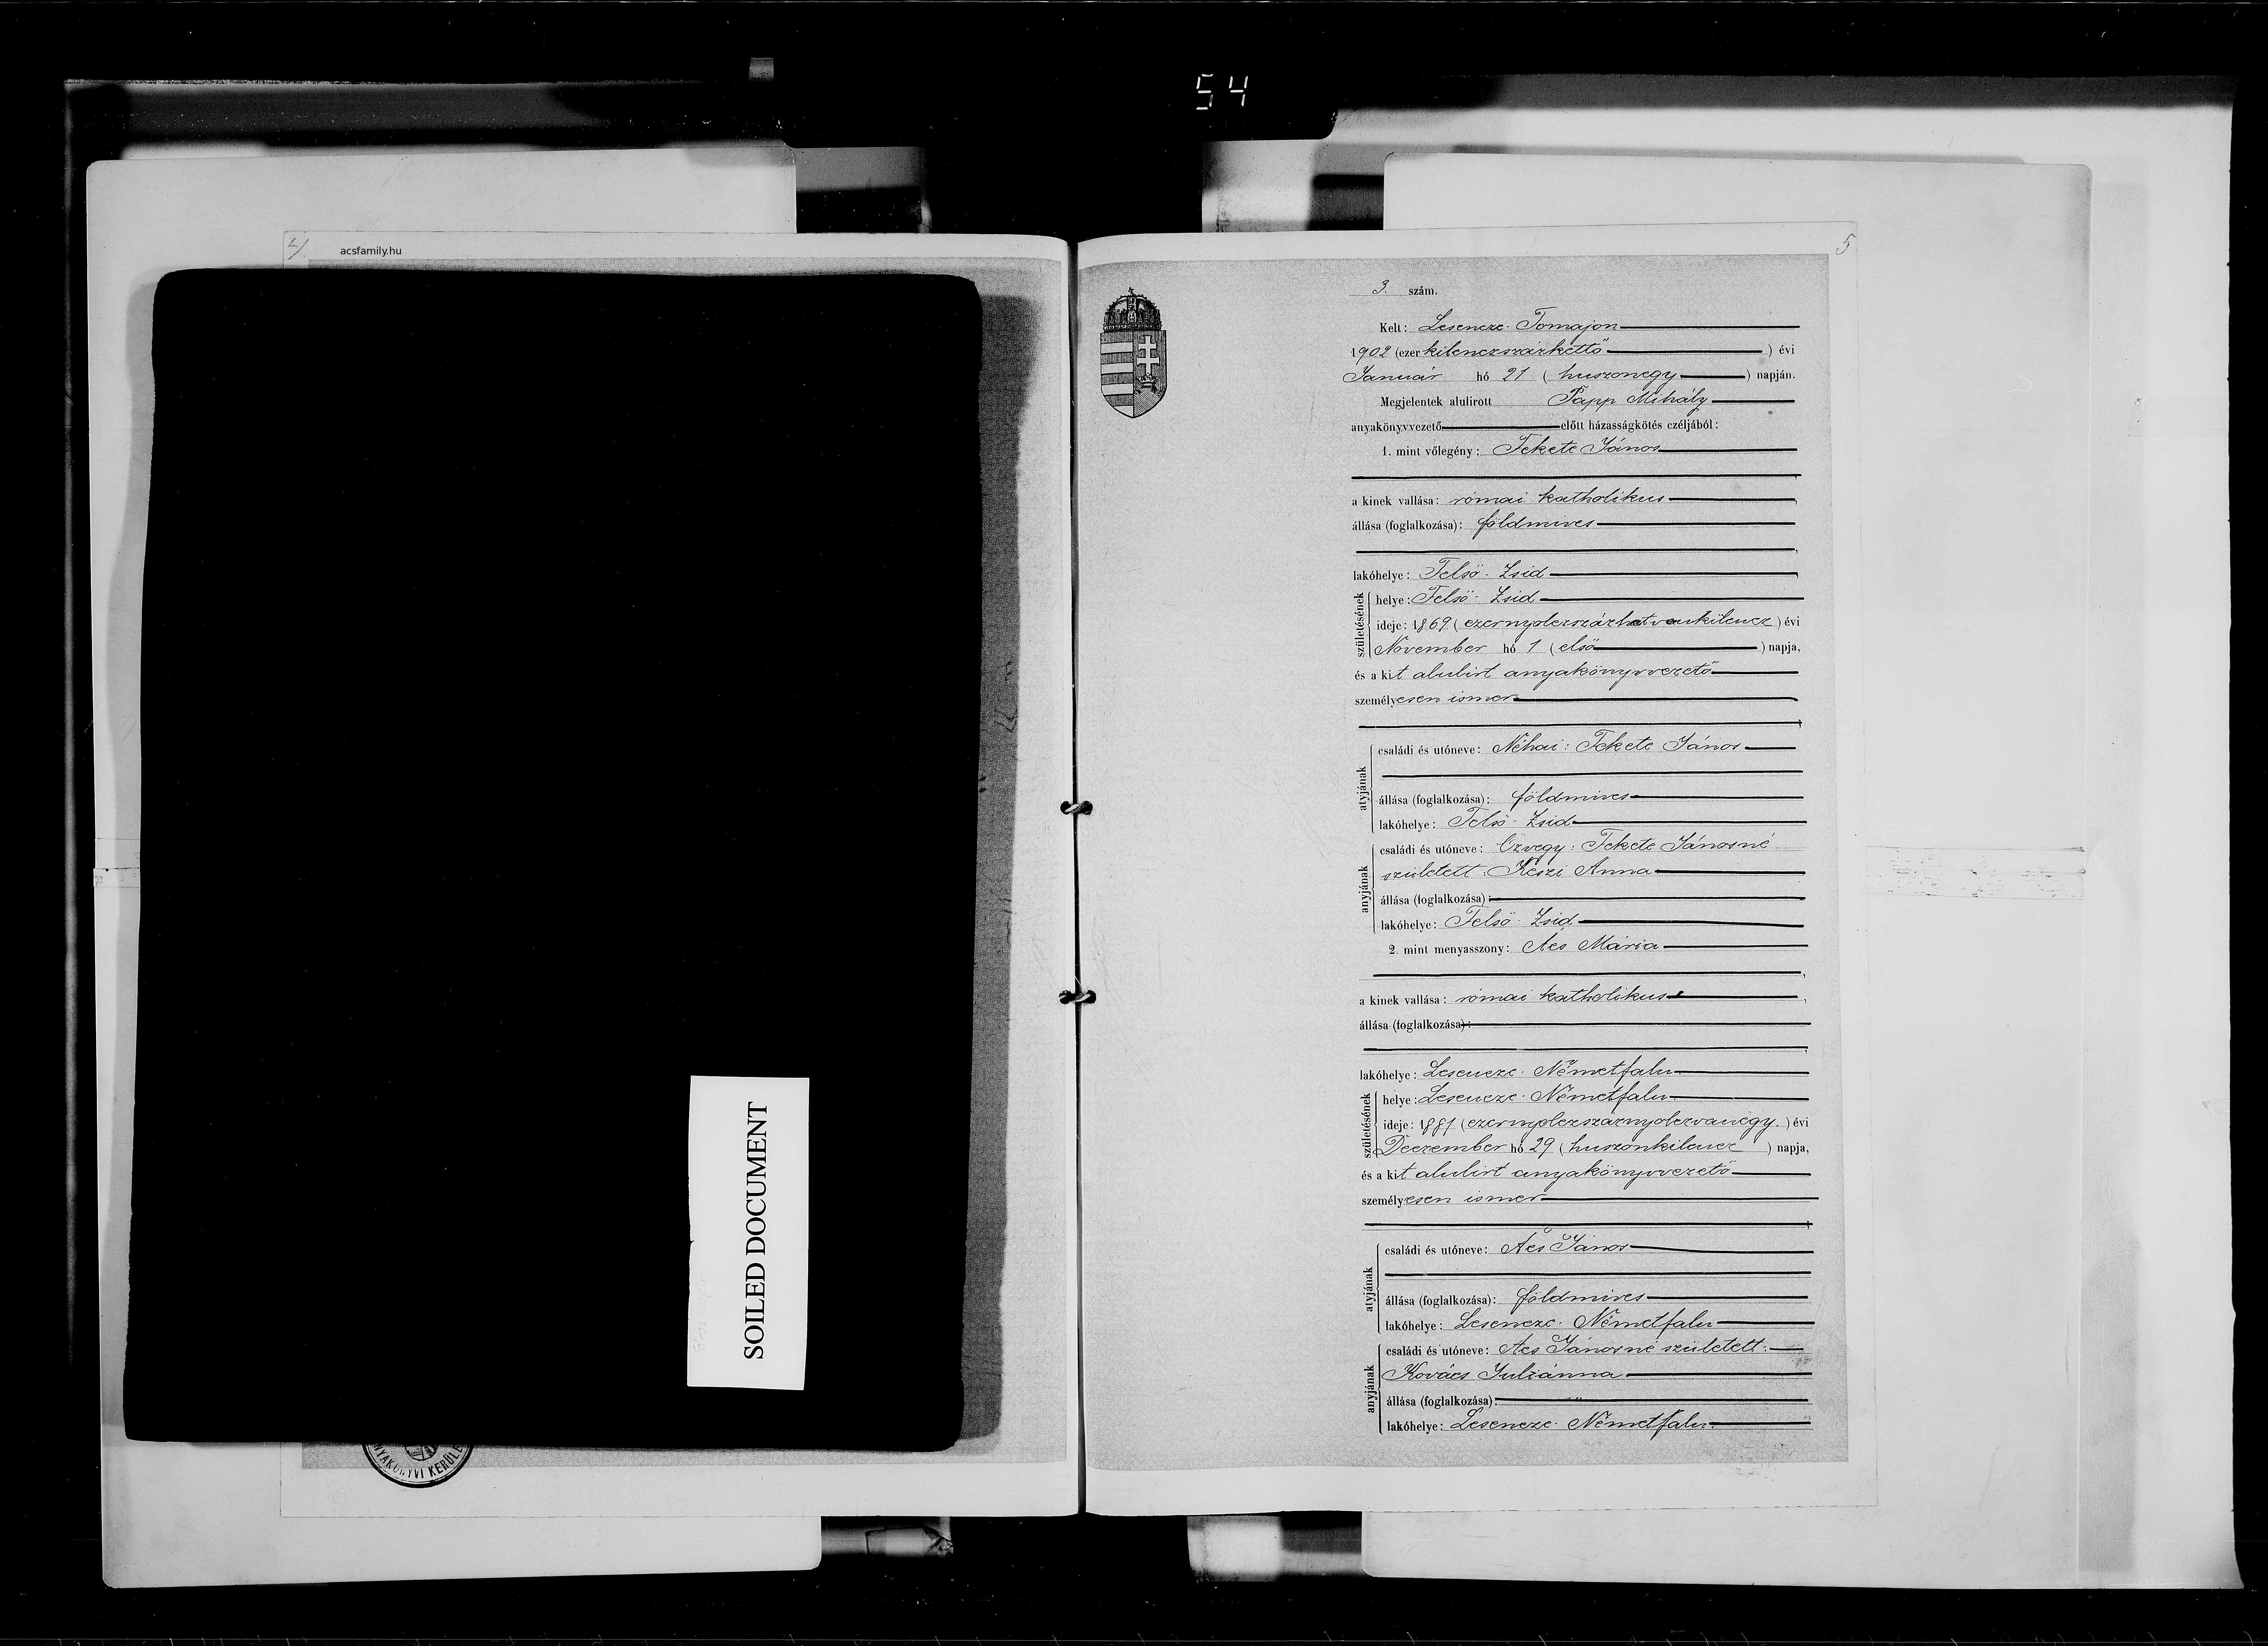 54
4
acsfamily.hu
SOILED DOCUMENT
NYAKÖNYVI KERÜLE
5
3. szám.
Kelt: Lesencze-Tomajon
1902 (ezer kilenczszázkettő) évi
Január hó 21 (huszonegy) napján.
Megjelentek alulirott Papp Mihály
anyakönyvvezető előtt házasságkötés czéljából:
1. mint vőlegény: Fekete János
a kinek vallása: római katholikus,
állása (foglalkozása): földmives
lakóhelye: Felső-Zsid,
születésének
helye: Felső-Zsid
ideje: 1869 (ezernyolczszázhatvankilencz) évi
November hó 1 (első) napja,
és a kit alulirt anyakönyvvezető
személyesen ismer
atyjának
családi és utóneve: Néhai: Fekete János
állása (foglalkozása): földmives
lakóhelye: Felső-Zsid
anyjának
családi és utóneve: Özvegy: Fekete Jánosné
született: Keszi Anna
állása (foglalkozása):
lakóhelye: Felső-Zsid
2. mint menyasszony: Ács Mária
a kinek vallása: római katholikus,
állása (foglalkozása):
lakóhelye: Lesencze-Németfalu
születésének
helye: Lesencze-Németfalu
ideje: 1881 (ezernyolczszáznyolczvanegy) évi
Deczember hó 29 (huszonkilencz) napja,
és a kit alulirt anyakönyvvezető
személyesen ismer
atyjának
családi és utóneve: Ács János
állása (foglalkozása): földmives
lakóhelye: Lesencze-Németfalu
anyjának
családi és utóneve: Ács Jánosné született:
Kovács Juliánna
állása (foglalkozása):
lakóhelye: Lesencze-Németfalu